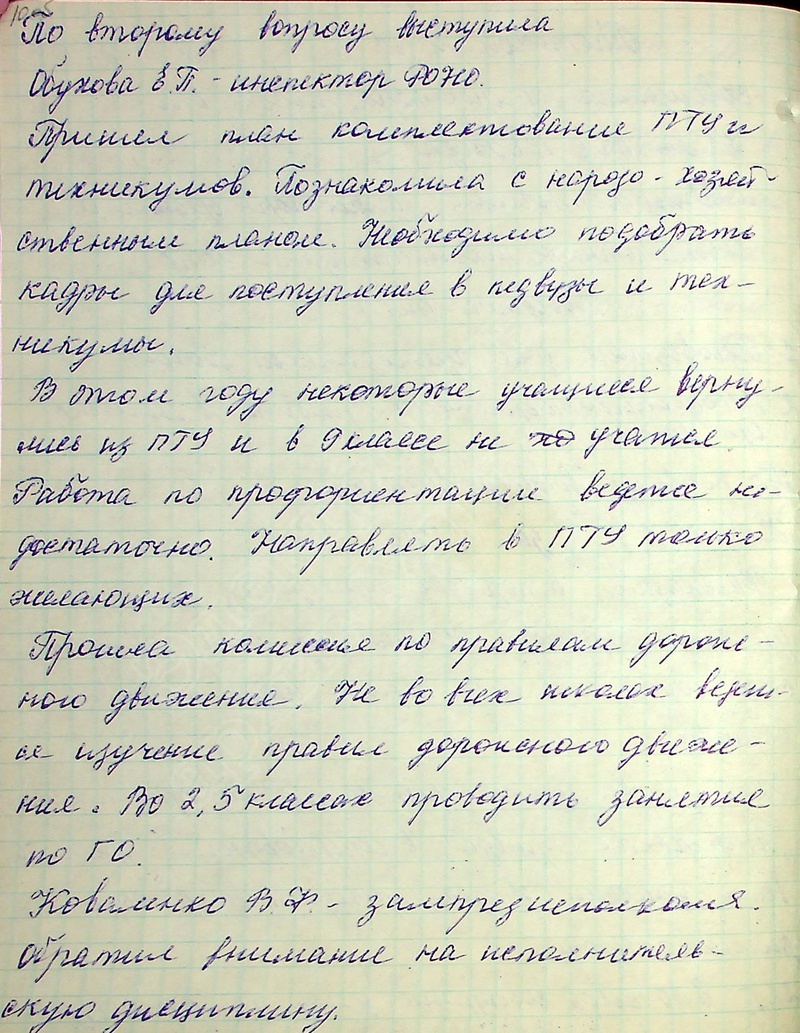 По второму вопросу выступила
Обухова Е.П. - инспектор РОНО.
Пришел план комплектование ПТУ и
техникумов. Познакомила с народо-хозяй-
ственным планом. Необходимо подобрать
кадры для поступления в педвузы и тех-
никумы.
В этом году некоторые учащиеся верну-
лись из ПТУ и в 9 классе не учатся.
Работа по профориентации ведется не-
достаточно. Направлять в ПТУ только
желающих.
Прошла комиссия по правилам дорож-
ного движения. Не во всех школах ведет-
ся изучение правил дорожного движе-
ния. Во 2, 5 классах проводить занятия
по ГО.
Коваленко В.Ф. - зампредисполкома.
Обратил внимание на исполнитель-
скую дисциплину.